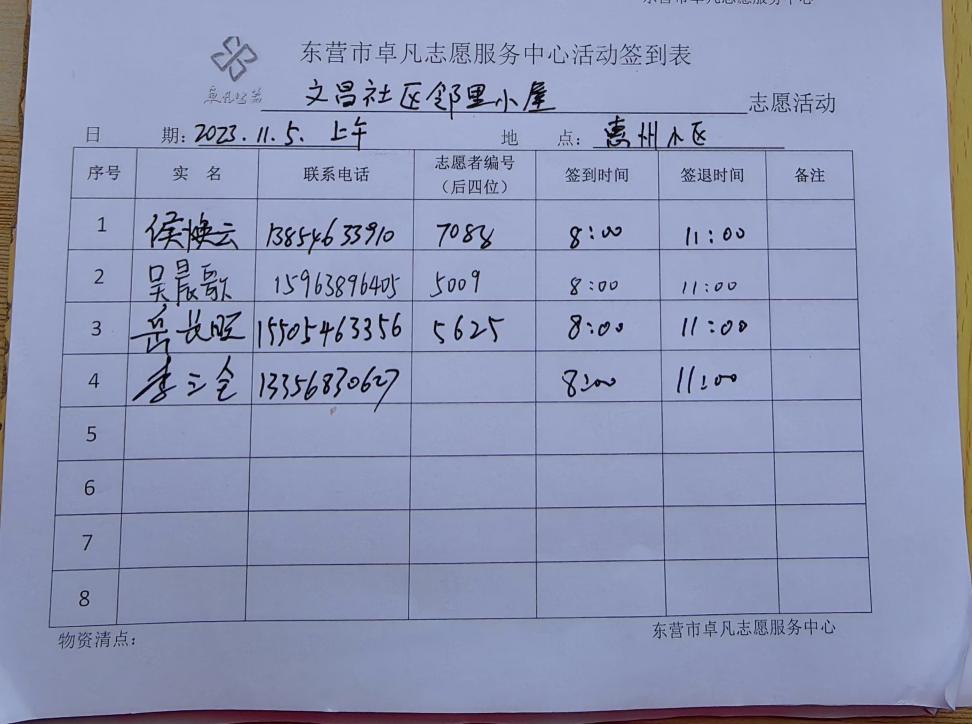 东营市卓凡志愿服务中心活动签到表
文昌社区邻里小屋 志愿活动
日 期: 2023.11.5. 上午 地 点: 惠州小区
序号 实 名 联系电话 志愿者编号(后四位) 签到时间 签退时间 备注
1 侯焕云 13854633910 7088 8:00 11:00
2 吴晨歌 15963896405 5009 8:00 11:00
3 岳长旺 15505463356 5625 8:00 11:00
4 李三全 13356830627 8:00 11:00
5
6
7
8
物资清点: 东营市卓凡志愿服务中心